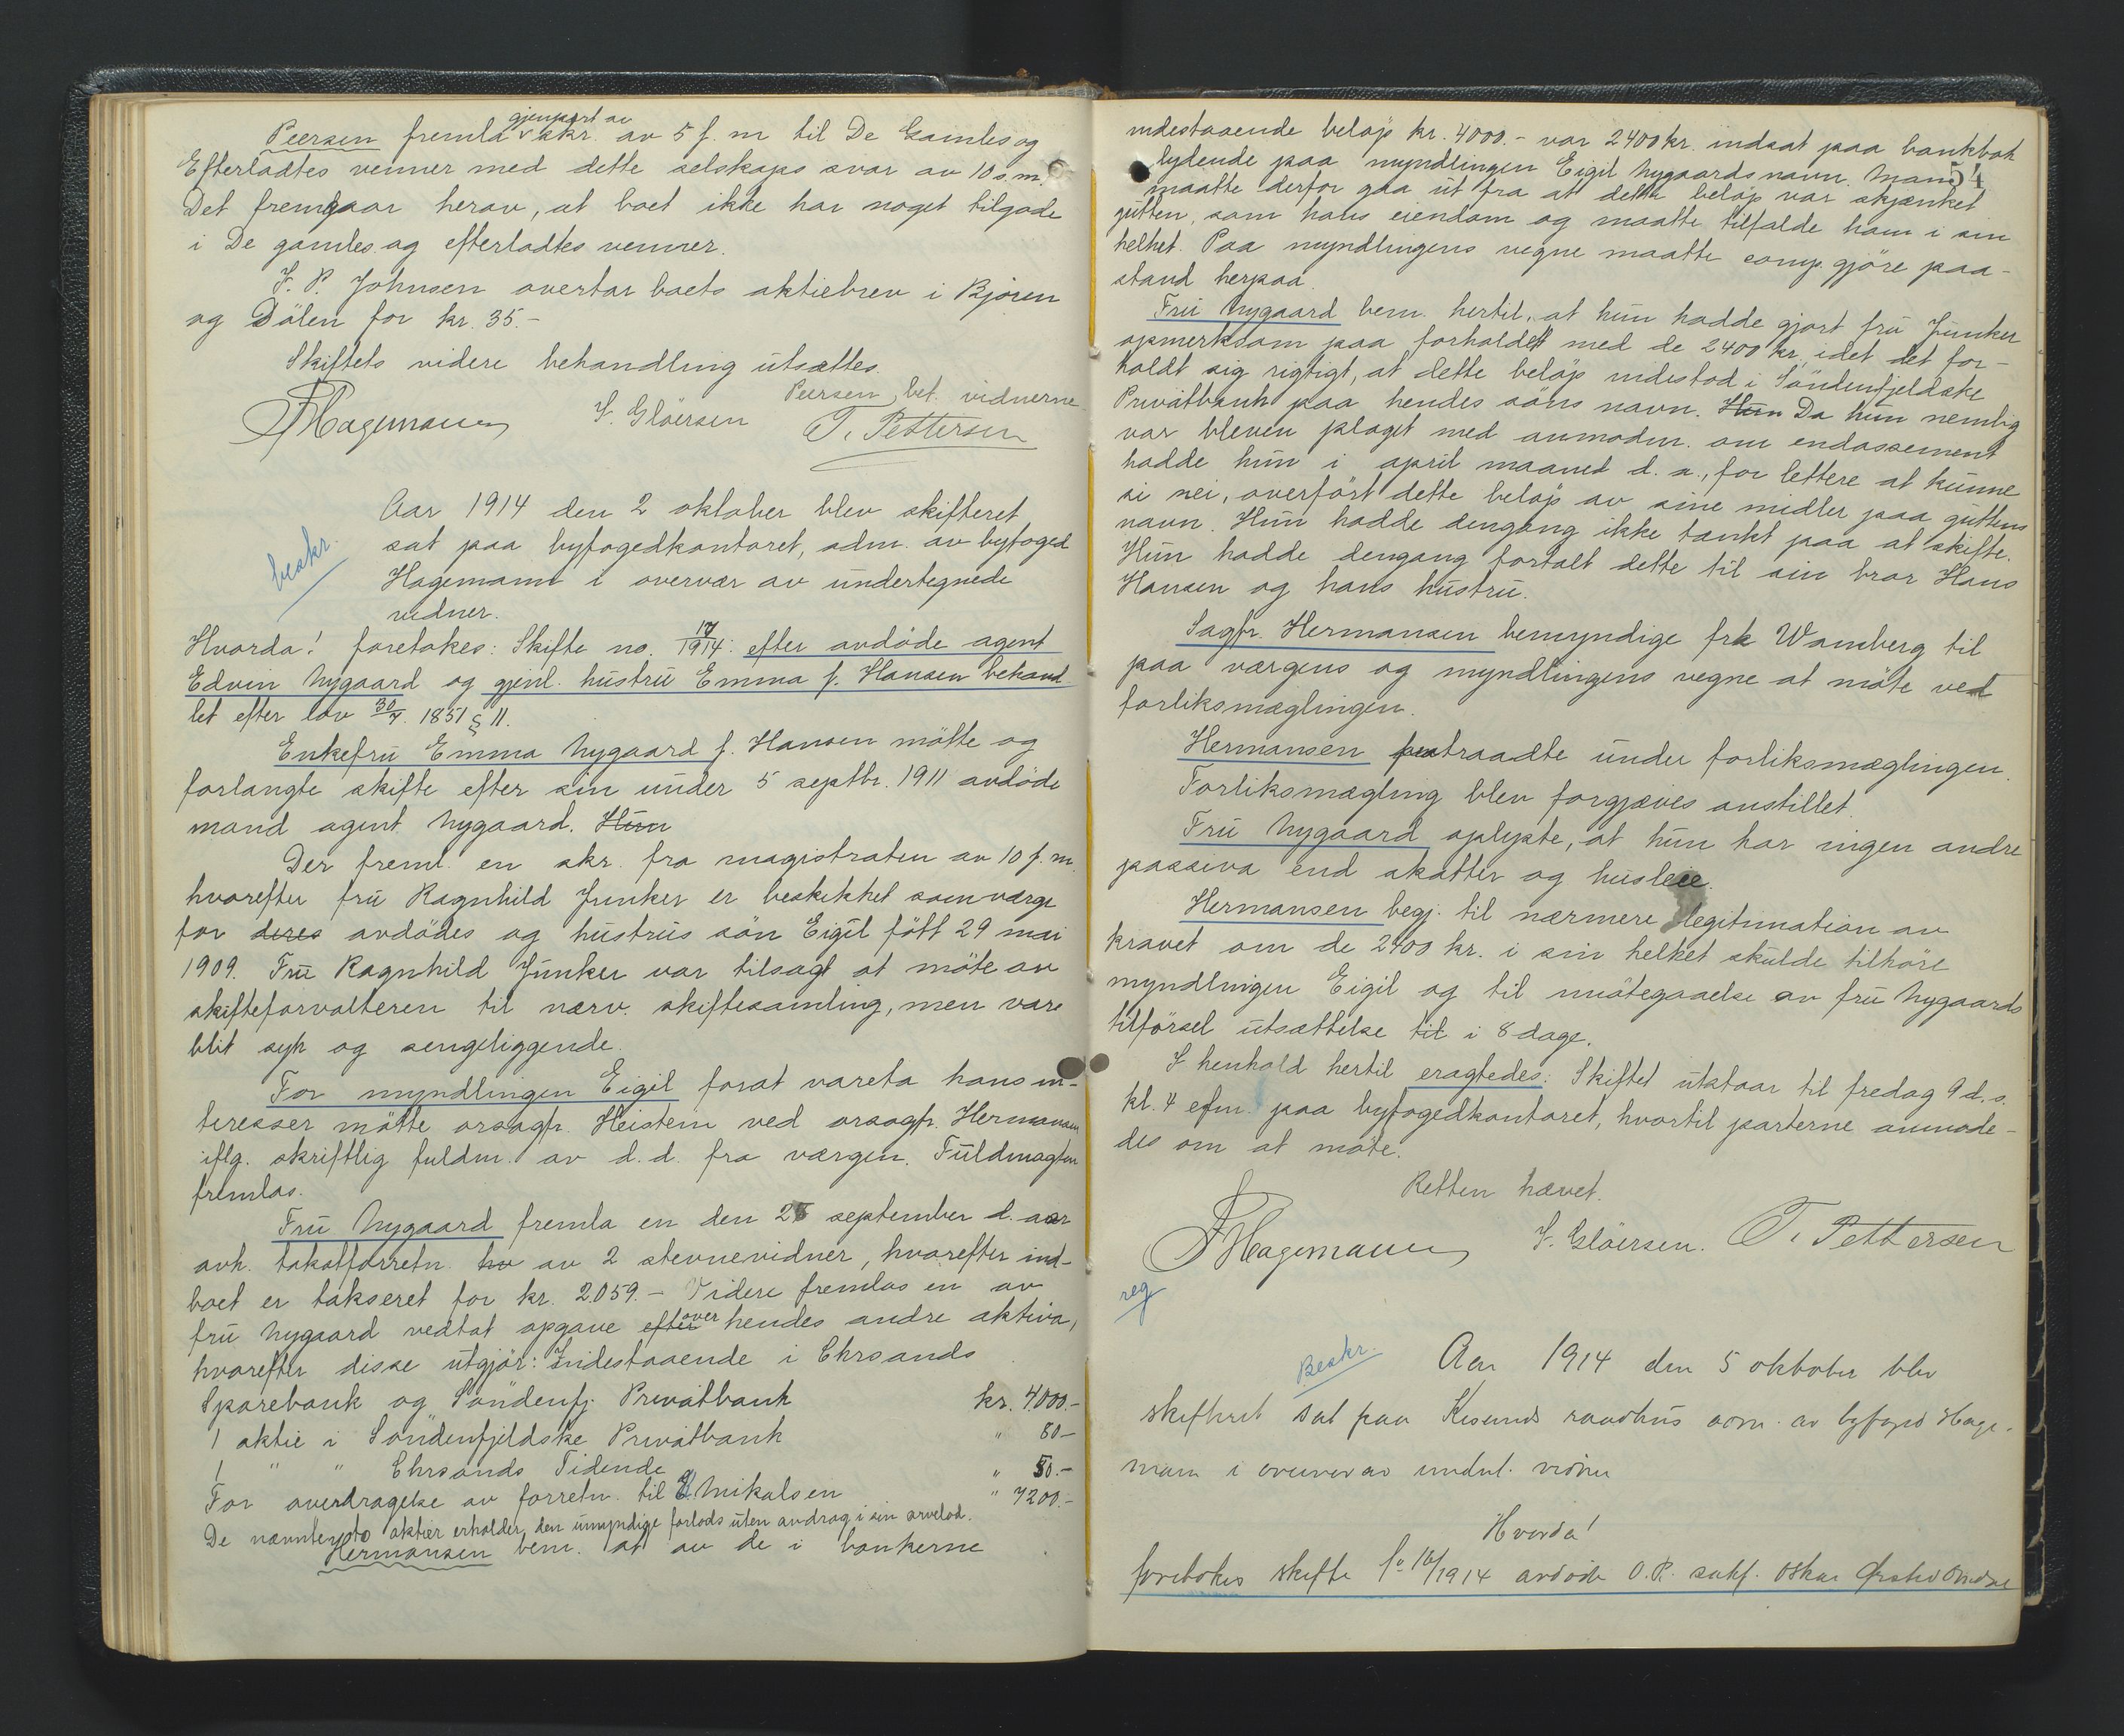 gjenpart av
Peersen fremla skr. av 5 f. m til De Gamles og
Efterladtes venner med dette selskaps svar av 10 s. m.
Det fremgaar herav, at boet ikke har noget tilgode
i De gamles og efterladtes venner.
J. P. Johnsen overtar boets aktiebrev i Bjoren
og Dålen for kr. 35.-
Skiftets videre behandling utsættes.
Peersen, bet. vidnerne.
FHagemann J. Glöersen T. Pettersen
beskr.
Aar 1914 den 2 oktober blev skifteret
sat paa byfogedkontoret, adm. av byfoged
Hagemann i overvær av undertegnede
vidner.
Hvorda! foretokes: Skifte no. 17/1914: efter avdöde agent
Edvin Nygaard og gjenl. hustru Emma f. Hansen behand
let efter lov 30/7. 1851 § 11.
Enkefru Emma Nygaard f. Hansen mötte og
forlangte skifte efter sin under 5 septbr. 1911 avdöde
mand agent Nygaard. Hun
Der freml. en skr. fra magistraten av 10 f. m.
hvorefter fru Ragnhild Junker er beskikket som værge
for deres avdödes og hustrus sön Eigil fött 29 mai
1909. Fru Ragnhild Junker var tilsagt at möte av
skifteforvalteren til nærv. skiftesamling, men var
blit syk og sengeliggende.
For myndlingen Eigil forat vareta hans in-
teresser mötte orsagfr. Heistein ved orsagfr. Hermansen
iflg. skriftlig fuldm. av d. d. fra værgen. Fuldmagten
fremlas.
Fru Nygaard fremla en den 25 september d. aar
avh. takstforretn. hv av 2 stevnevidner, hvorefter ind-
boet er takseret for kr. 2.059.- Videre fremlas en av
fru Nygaard vedtat opgave efter over hendes andre aktiva,
hvorefter disse utgjör: Indestaaende i Chrsands
Sparebank og Söndenfj. Privatbank kr. 4000.-
1 aktie i Söndenfjeldske Privatbank " 80-
1 " " Chrsands Tidende " 50.-
For overdragelse av forretn. til E. Mikalsen " 7200.-
De nævnte to aktier erholder den umyndige forlods uten avdrag i sin arvelod.
Hermansen bem. at av de i bankerne
54
indestaaende beløp kr. 4000.- var 2400 kr. indsat paa bankbok
lydende paa myndlingen Eigil Nygaards navn. Man
maatte derfor gaa ut fra at dette beløp var skjænket
gutten, som hans eiendom og maatte tilfalde ham i sin
helhet. Paa myndlingens vegne maatte comp. gjöre paa-
stand herpaa.
Fru Nygaard bem. hertil, at hun hadde gjort fru Junker
opmerksom paa forholdet med de 2400 kr., idet det for-
holdt sig rigtigt, at dette belöp indestod i Söndenfjeldske
Privatbank paa hendes söns navn. Hun Da hun nemlig
var bleven plaget med anmodn. om endossement
hadde hun i april maaned d. a., for lettere at kunne
si nei, overfört dette belöp av sine midler paa guttens
navn. Hun hadde dengang ikke tænkt paa at skifte.
Hun hadde dengang fortalt dette til sin bror Hans
Hansen og hans hustru.
Sagfr. Hermansen bemyndige frk Wamberg til
paa værgens og myndlingens vegne at möte ved
forliksmæglingen.
Hermansen fratraadte under forliksmæglingen.
Forliksmægling blev forgjæves anstillet.
Fru Nygaard oplyste, at hun har ingen andre
passiva end skatter og husleie.
Hermansen begj. til nærmere legitimation av
kravet om de 2400 kr. i sin helhet skulde tilhöre
myndlingen Eigil og til imötegaaelse av fru Nygaards
tilförsel utsættelse til i 8 dage.
I henhold hertil eragtedes: Skiftet utstaar til fredag 9 d. s.
kl. 4 efm. paa byfogedkontoret, hvortil parterne anmode-
des om at möte.
Retten hævet.
FHagemann J. Glöersen. T. Pettersen
reg
Beskr.
Aar 1914 den 5 oktober blev
skifteret sat paa raadhus adm. av byfoged Hage-
mann i overvær av undert. vidner
Hvorda!
foretokes skifte 16/1914 avdöde O. P. Oskar